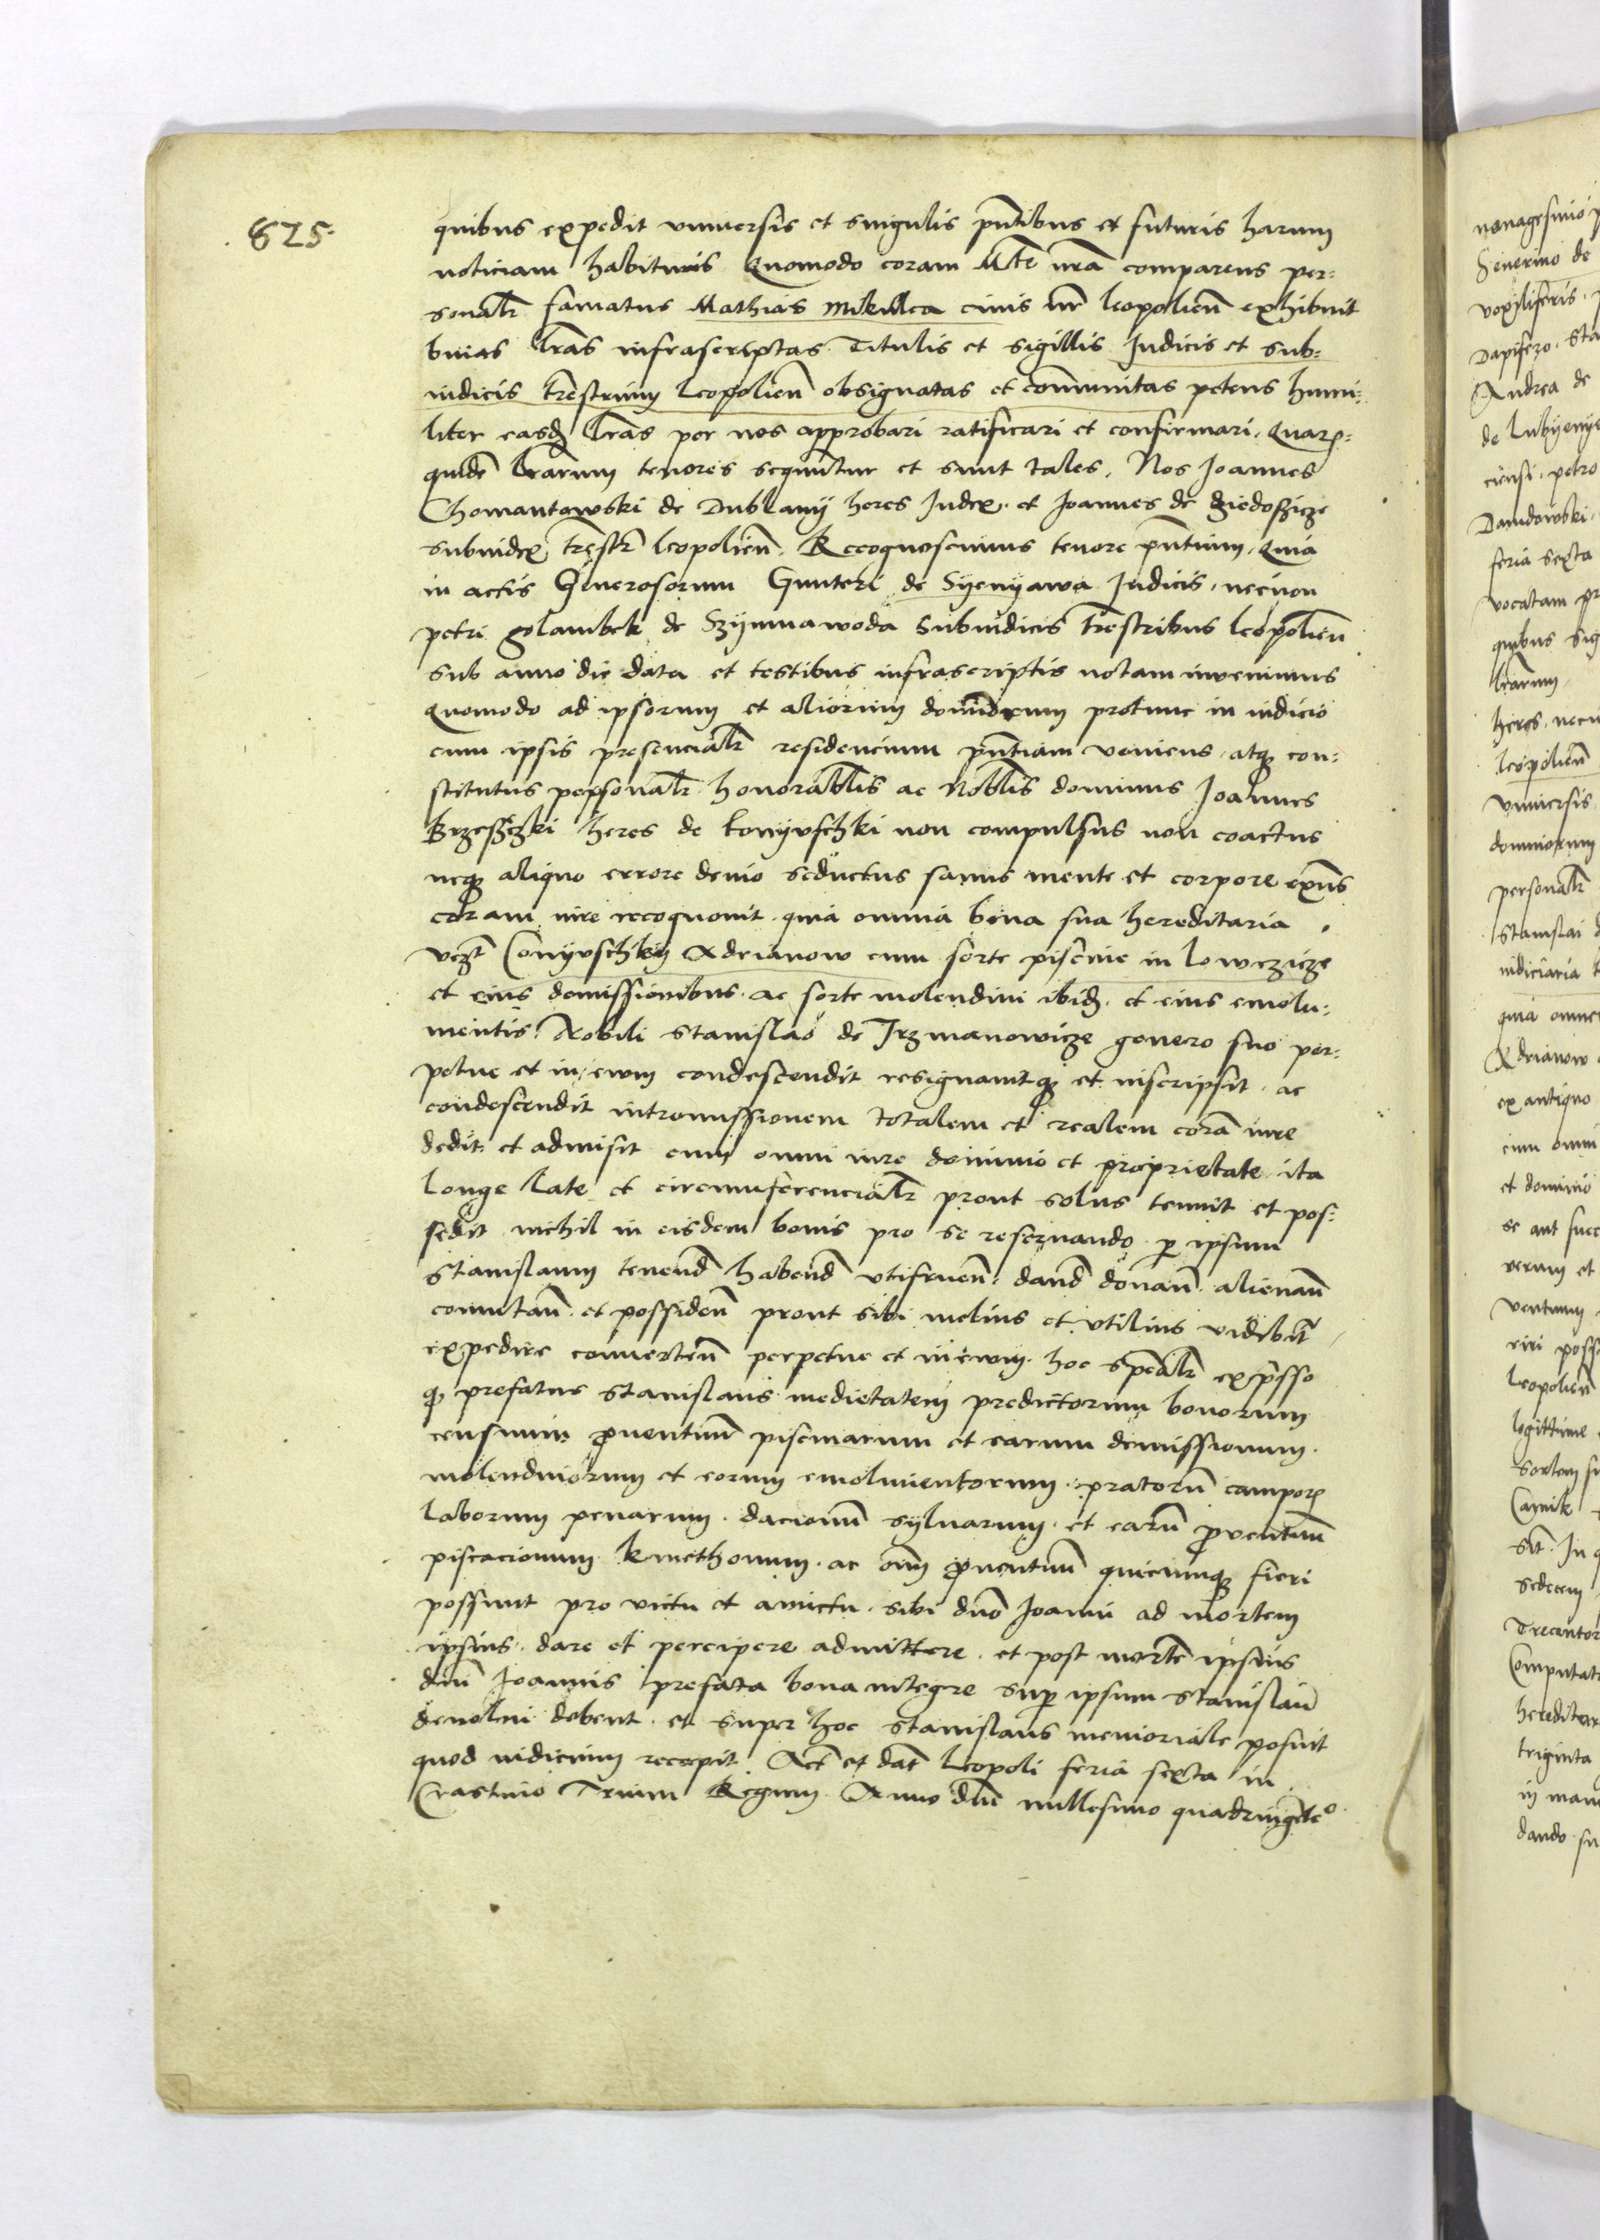 825.
quibus expedit vniuersis et singulis pntibus et futuris harum
noticiam habituris Quomodo coram Mte nra comparens per=
sonalr famatus Mathias Mikulka ciuis nr leopolien exhibuit
binas lras infrascriptas Titulis et sigillis Judicis et sub=
iudicis trestrium leopolien obsignatas et communitas petens humi=
liter easd lras per nos approbari ratificari et confirmari. Quar=
quide lrarum tenores sequntur et sunt tales. Nos Joannes
Chomantowski de Dublany heres Judex. et Joannes de Dziedoszicze
subiudex trestr leopolien. Recognoscimus tenore pntium. Quia
in actis Generosorum Gunteri de Syenyawa Judicis. necnon
petri golambek de Szymnawoda Subiudicis trestribus leopolien
sub anno die data et testibus infrascriptis notam inuenimus
Quomodo ad ipsorum et aliorum dominorum protunc in iudicio
cum ipsis presencialr residencium pntiam veniens. atq con=
stitutus personalr honorablis ac Noblis dominus Joannes
Brzesczki heres de konyvschki non compulsus non coactus
neq aliquo errore deuio seductus sanus mente et corpore exns
coram iure recognouit. quia omnia bona sua hereditaria.
vczt Conyvschky Adrianow cum sorte piscine in Lowczicze
et eius demissionibus. ac sorte molendini ibid. et eius emolu=
mentis. Nobili Stanislao de Jrzmanowicze genero suo per=
petue et in ewm condescendit resignauitq et inscripsit. ac
condescendit intromissionem totalem et realem cora iure
dedit et admisit cum omni iure dominio et proprietate ita
longe late et circumferencialr prout solus tenuit et pos=
sedit nichil in eisdem bonis pro se reseruando p ipsum
Stanislaum tenend habend vtifruen. dand donan alienan
comutan. et possiden prout sibi melius et vtilius videbit
expedire conuerten perpetue et in ewm. hoc spealr expsso
q prefatus Stanislaus medietatem predictorum bonorum
censuum prouentuum piscinarum et earum demissionum.
molendinorum et eorum emolumentorum. pratoru campor
laborum penarum. dacionum syluarum. et earu prouentuum
piscacionum kmethonum. ac oim prouentuum quicumq fieri
possunt pro victu et amictu sibi dno Joanni ad mortem
ipsius. dare et percipere admittere. et post morte ipsius
dni Joannis prefata bona integre sup ipsum Stanislau
deuolui debent. et super hoc Stanislaus memoriale posuit
quod iudicium recepit. Act et dat leopoli feria sexta in
Crastino Trium Regum Anno dni millesimo quadringete°
nonagesimo
Seuerino de
vexiliferis.
Dapifero. Sta
Andrea de
de lubyenye
ciensi. petro
Dauidowski.
feria sexta
vocatam pr
quibus sig
lrarum.
heres. necn
leopolien
vniuersis
dominorum
personalr
Stanislai d
iudiciaria
quia omne
Adrianow
ex antiquo
cum omni
et dominio
se aut succ
verum et
ventum
eiri poss
leopolien
legittime
sortem su
Carnik
Sit. In q
sedecim
Trecentor
Computat
hereditar
triginta
in manu
dando su